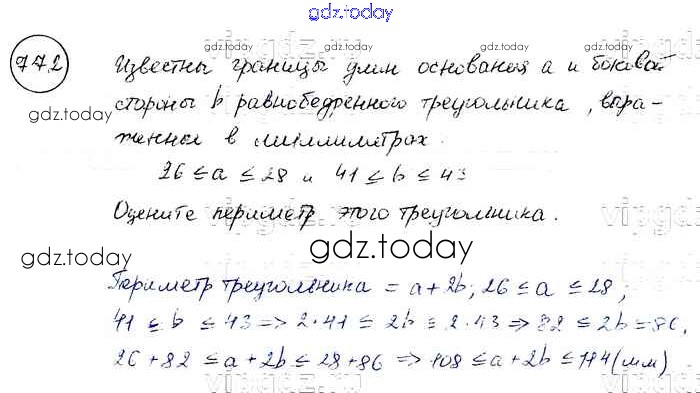 gdz.today
772
Известны границы длин основания a и боковой
стороны b равнобедренного треугольника, выра-
женные в миллиметрах.
26 ≤ a ≤ 28 и 41 ≤ b ≤ 43
Оцените периметр этого треугольника.
gdz.today
Периметр треугольника = a + 2b; 26 ≤ a ≤ 28;
41 ≤ b ≤ 43 => 2·41 ≤ 2b ≤ 2·43 => 82 ≤ 2b ≤ 86,
26 + 82 ≤ a + 2b ≤ 28 + 86 => 108 ≤ a + 2b ≤ 114 (мм)